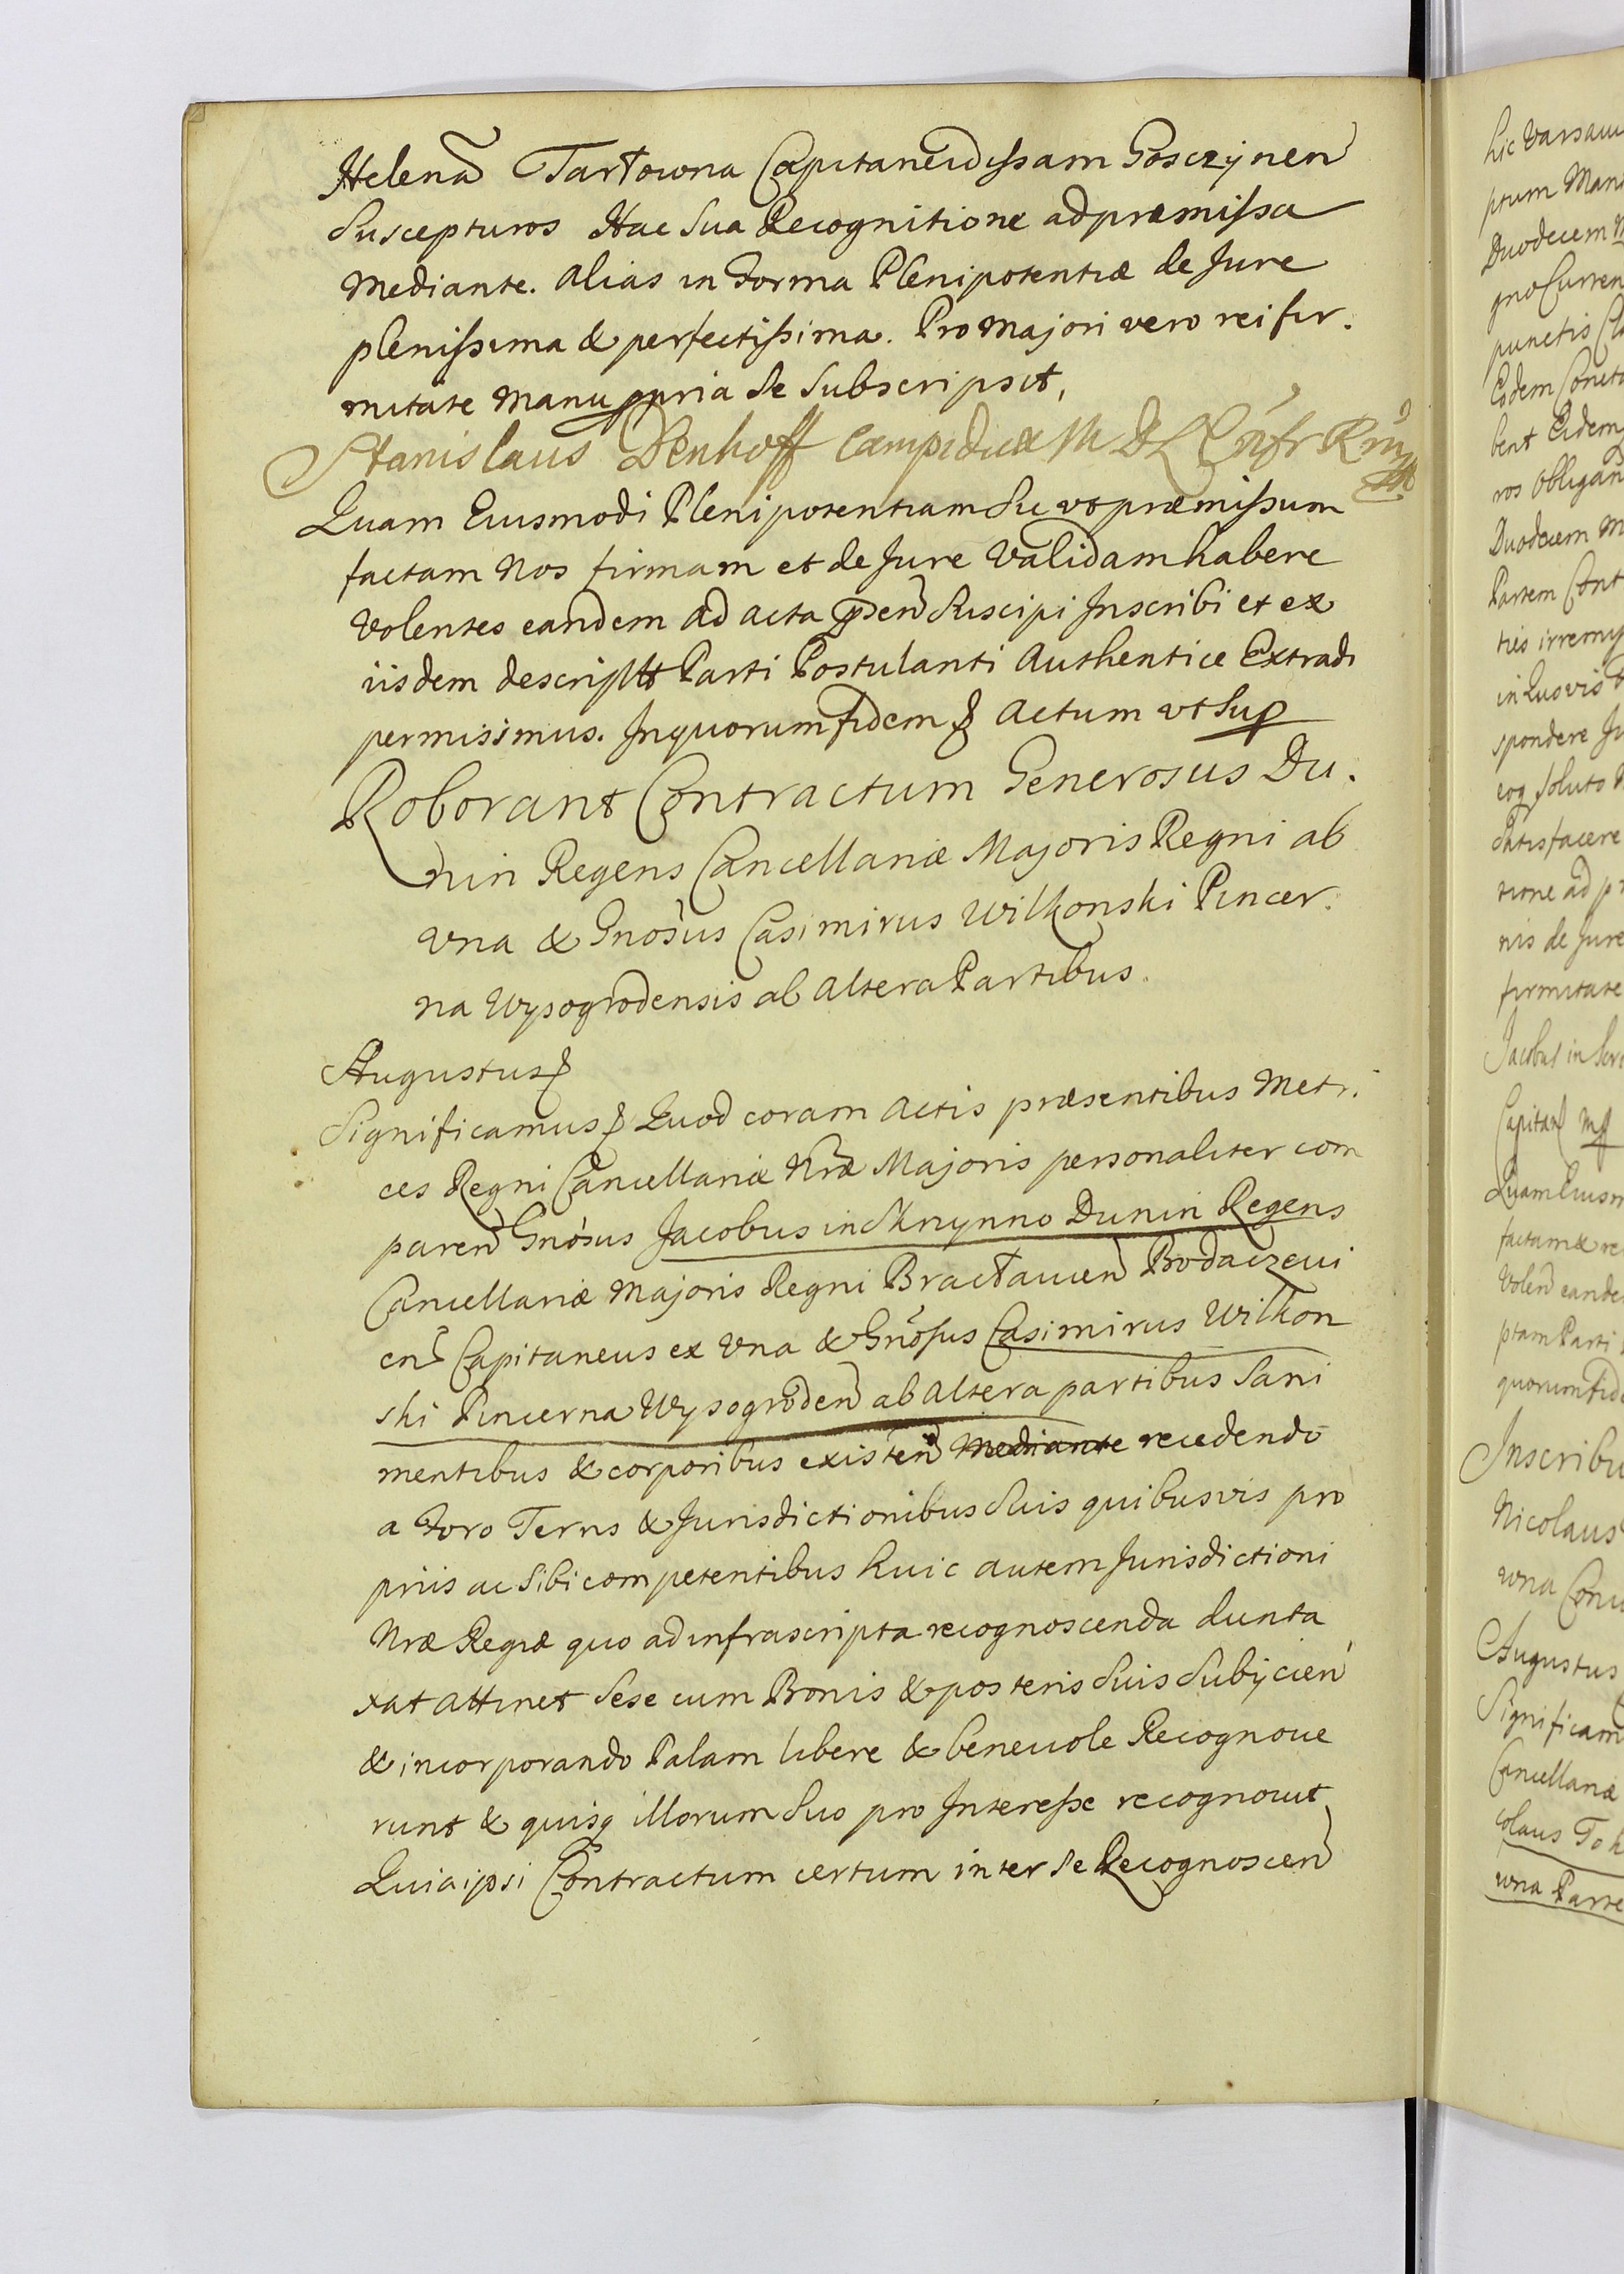 Helenã Tartowna Capitaneidissam Gosczÿnen
Suscepturos Hac Sua Recognitione ad præmissa
Mediante. alias in Forma Plenipotentiæ de Jure
plenissima & perfectissima. Pro majori vero rei fir.
mitate Manu ppria Se Subscripsit,
Stanislaus Denhoff Campidux M D L
Quam Eiusmodi Plenipotentiam Sic vt præmissum
factam Nos firmam et de Jure Validam habere
Volentes eandem ad acta psen Suscipi Inscribi et ex
iisdem descriptã Parti Postulanti Authentice Extradi
permisimus. In quorum fidem & Actum vt Sup
Roborant Contractum Generosus Du.
nin Regens Cancellariæ Majoris Regni ab
vna & Gnosus Casimirus Wilkonski Pincer.
na Wysogrodensis ab Altera Partibus.
Augustus &
Significamus & Quod coram Actis præsentibus Metri
ces Regni Cancellariæ Nræ Majoris personaliter com
paren Gnosus Jacobus in Skrzynno Dunin Regens
Cancellariæ Majoris Regni Bractauien Bodaczeui
en Capitaneus ex Vna & Gnosus Casimirus Wilkon
ski Pincerna Wysogroden ab Altera partibus Sani
mentibus & corporibus existen Mediante recedendo
a Foro Terris & Jurisdictionibus Suis quibusvis pro
priis ac Sibi competentibus huic autem Jurisdictioni
Nræ Regiæ quo ad infrascripta recognoscenda dunta
xat attinet Sese cum Bonis & posteris Suis Subijcien
& incorporando Palam libere & beneuole Recognoue
runt & quisq illorum Suo pro Interesse recognouit,
Quia ipsi Contractum certum inter Se Recognoscen
hic Varsaui
ptum Mani
Duodecem M
gno Curren
punctis
Eodem
bent Eidem
ros Obligan
Duodecem M
Partem Cont
ties irremis
in Quovis
spondere Ju
eoq soluto
Satisfacere
tione ad p
nis de Jure
firmitate
Jacobus in
Capitan mp
Quam Eiusm
factam & re
Volen eande
ptam Parti
quorum fide
Inscribu
Nicolaus
vna
Augustus
Significam
Cancellariæ
colaus
vna Parte